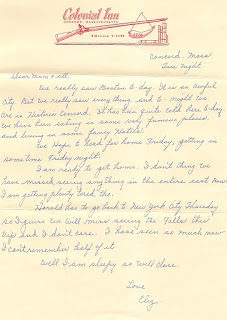 Colonial Inn
CONCORD, MASSACHUSETTS
Concord, Mass
Tues Night
Dear Mum & all,
We really saw Boston to-day. It is an awful
city. But we really saw everything and to-night we
are in Historic Concord. It has been quite cold here to-day
we have been eating in some very famous places
and living in some fancy Hotels.
We hope to head for home Friday, getting in
sometime Friday night.
I am ready to get home. I don't think we
have missed seeing anything in the entire east. Now
I am getting plenty tired tho.
Harold has to go back to New York City Thursday
so I figure we will miss seeing the Falls this
trip and I don't care. I have seen so much now
I can't remember half of it
Well I am sleepy so will close.
Love